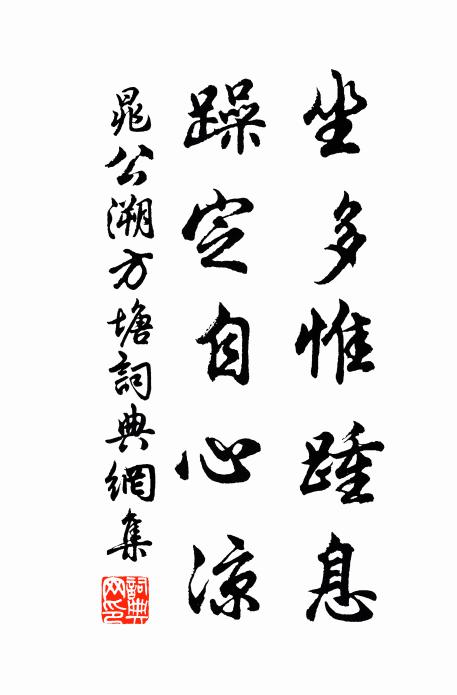 坐多惟踵息
躁定自心凉
晁公溯方塘詞典網集
詞典網印